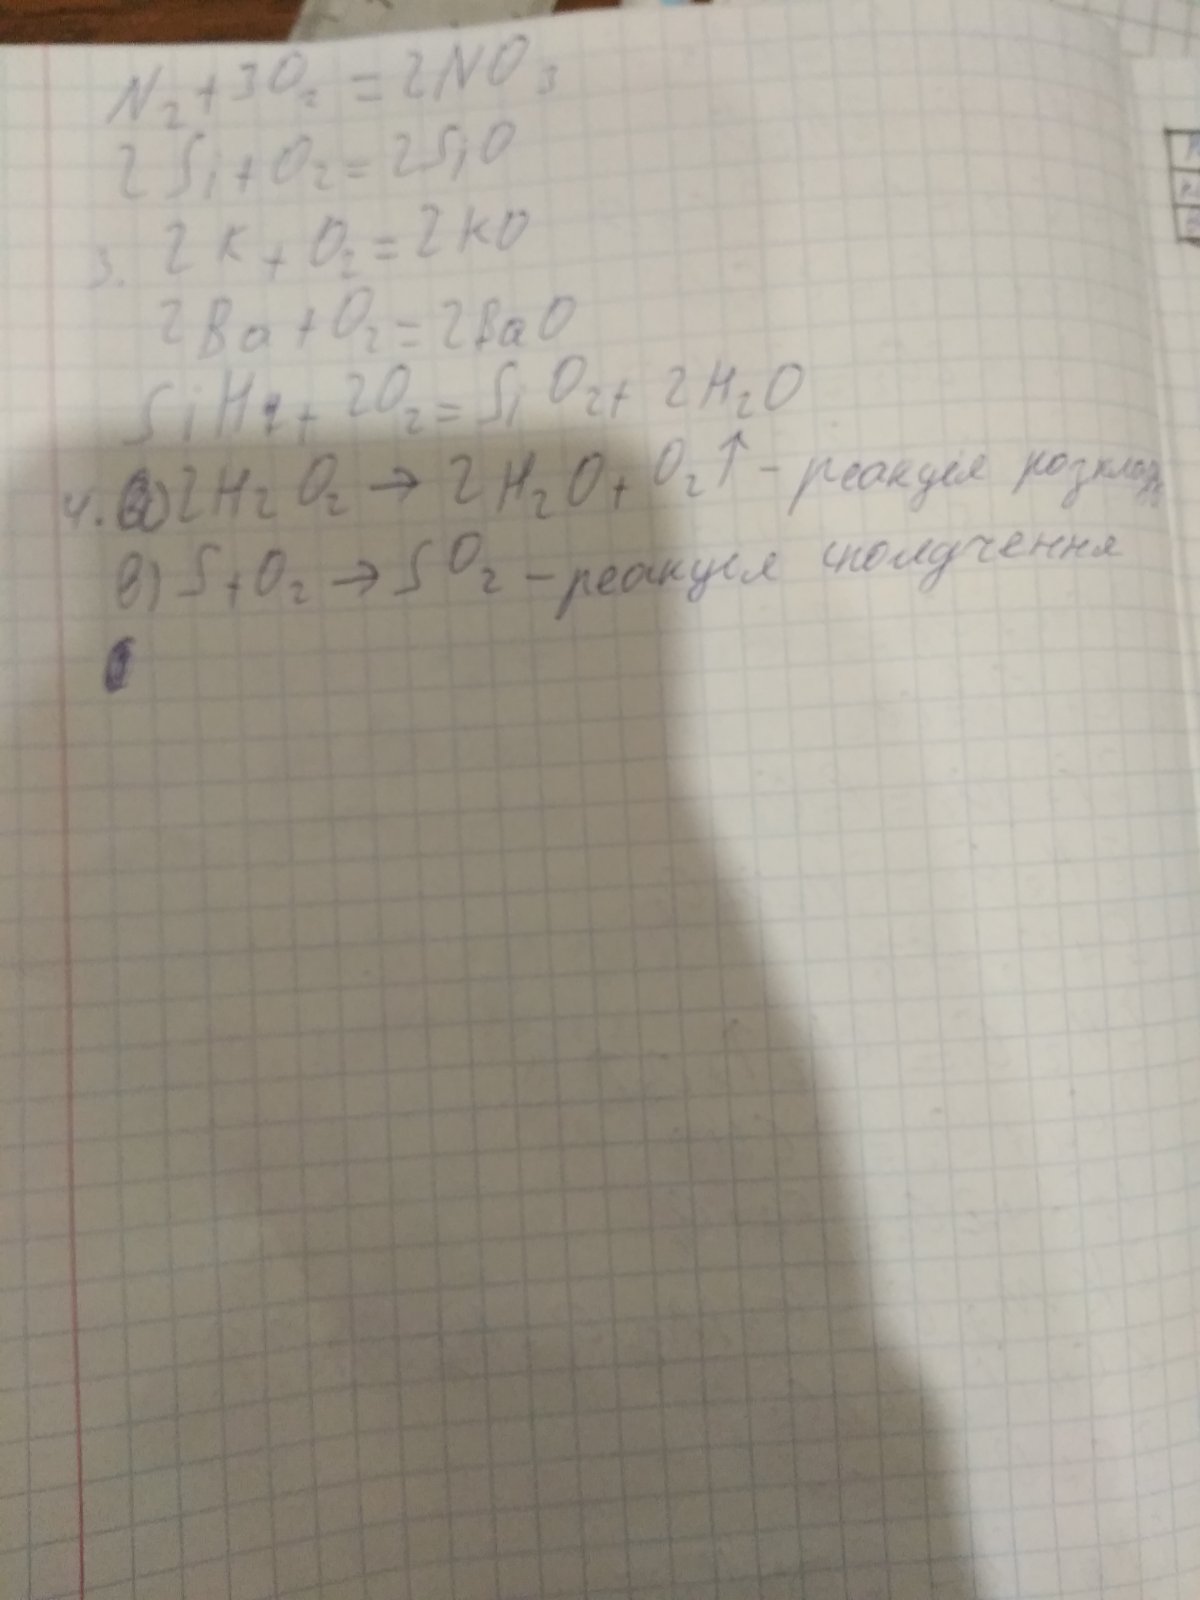 N₂+3O₂=2NO₃
2Si+O₂=2SiO
3. 2K+O₂=2KO
2Ba+O₂=2BaO
SiH₄+2O₂=SiO₂+2H₂O
4. а) 2H₂O₂→2H₂O+O₂↑-реакція
в) S+O₂→SO₂-реакція сполучення